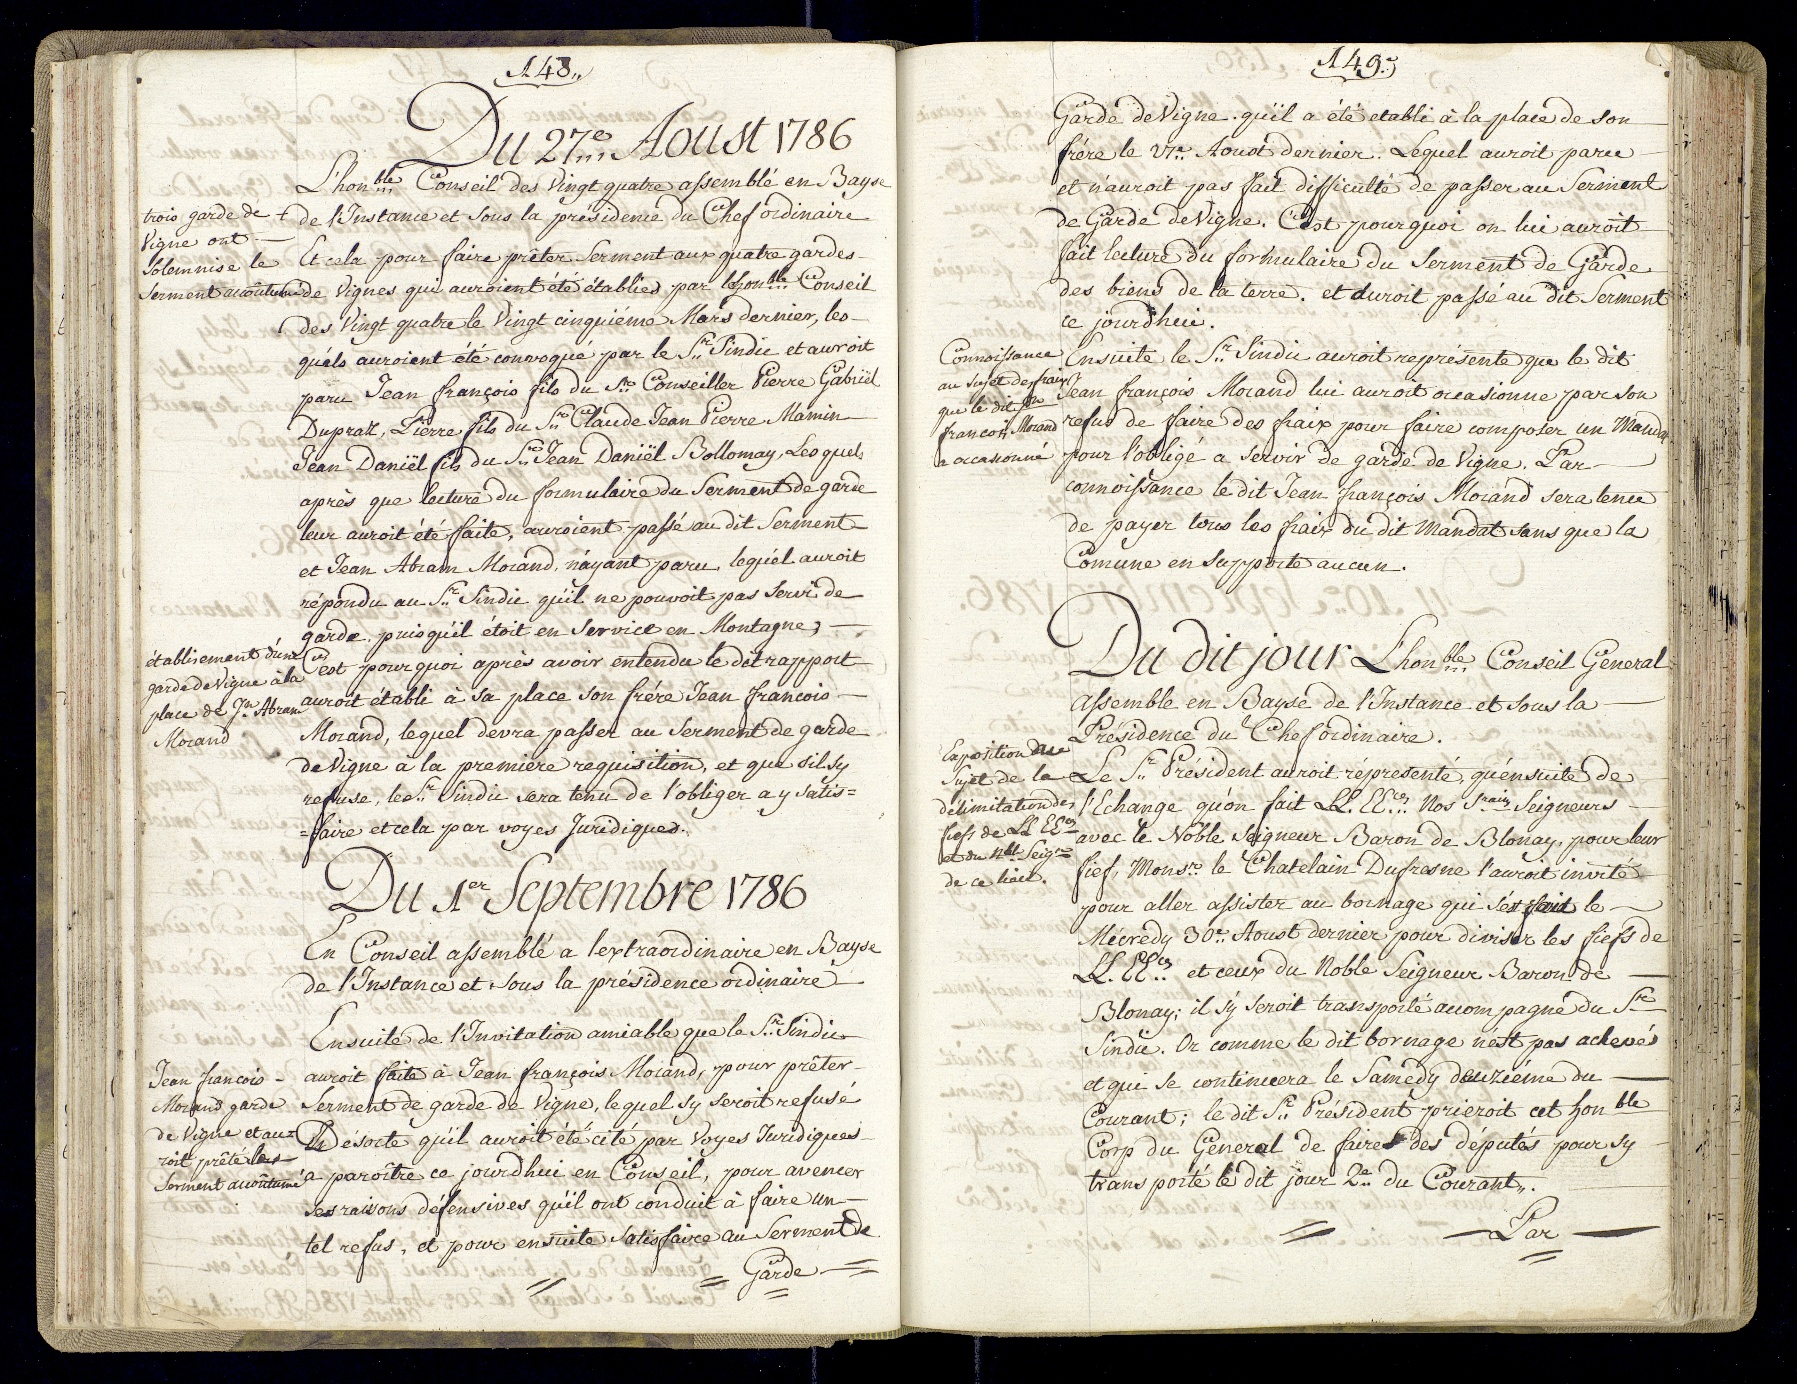 148.,
Du 27.e Aoust 1786
L'hon.ble Conseil des Vingt quatre assemblé en Bayse
de l'Instance et sous la présidence du Chef ordinaire
Et cela pour faire prêter Serment aux quatre gardes
de Vignes qui auroient été établies par lhon.ble Conseil
des Vingt quatre le Vingt cinquiéme Mars dernier, les-
quéls auroient été convoqué par le S.r Sindic et auroit
paru Jean françois fils du S.r Conseiller Pierre Gabriël
Dupraz, Pierre fils du S.r Claude Jean Pierre Mamin
Jean Daniël fils du S.r Jean Daniël Bollomay, Lesquels
après que lecture du formulaire du Serment de garde
leur auroit été faite, auroient passé au dit Serment
et Jean Abram Morand, n'ayant paru, lequel auroit
répondu au S.r Sindic qu'il ne pouvoit pas servir de
garde, puisqu'il étoit en service en Montagne;
C'est pourquoi après avoir entendu le dit rapport
auroit établi à sa place son frére Jean françois
Morand, lequel devra passer au Serment de garde
de Vigne a la premiere requisition, et que sil sy
refuse, le S.r Sindic sera tenu de l'obliger a y satis=
=faire et cela par voyes Juridiques.
trois garde de
Vigne ont
Solemnise le
Serment accoûtumé
établisement d'une
garde de Vigne à la
place de J.n Abram
Morand
Du 1.er Septembre 1786
En Conseil assemblé a lextraordinaire en Bayse
de l'Instance et sous la présidence ordinaire
Ensuite de l'Invitation amiable que le S.r Sindic
auroit faite à Jean françois Morand, pour prêter
Serment de garde de Vigne, lequel sy seroit refusé
Désorte qu'il auroit été cité par Voyes Juridiques
a paroître ce jourd'hui en Conseil, pour avencer
ses raisons défensives qu'il ont conduit à faire un
tel refus, et pour ensuite satisfaire au Serment de
Garde
Jean francois
Morand garde
de Vigne et au=
roit prêté le
Serment accoûtumé
149.
Garde de Vigne qu'il a été etabli à la place de son
frére le 27.e Aoust dernier. Lequel auroit paru
et n'auroit pas fait difficulté de passer au Serment
de Garde de Vigne. C'est pourquoi on lui auroit
fait lecture du formulaire du Serment de Garde
des biens de la terre. et auroit passé au dit Serment
ce jourdhui.
Ensuite le S.r Sindic auroit représente que le dit
Jean françois Morand lui auroit occasionne par son
refus de faire des fraix pour faire composer un Mandat
pour l'obligé a servir de garde de Vigne. Par
connoissance le dit Jean françois Morand sera tenu
de payer tous les fraix du dit Mandat sans que la
Comune en supporte aucun.
Connoissance
au sujet des fraix
que le dit Jn
francois Morand
a occasionné
Du dit jour L'hon.ble Conseil General
Assemble en Bayse de l'Instance et sous la
Présidence du Chef ordinaire.
Le S.r Président auroit répresenté, qu'ensuite de
l'Echange qu'on fait LL. EE.ces Nos S.rains Seigneurs
avec le Noble Seigneur Baron de Blonay, pour leur
fief, Mons.r le Chatelain Dufresne l'auroit invité
pour aller assister au bornage qui s'est fait le
Mécredy 30.e Aoust dernier pour diviser les fiefs de
LL. EE.ces et ceux du Noble Seigneur Baron de
Blonay; il s'y seroit transporté accompagné du S.r
Sindic. Or comme le dit bornage n'est pas achevé
et qui se continuera le Samedy deuzième du
Courant; le dit S.r Président prieroit cet hon.ble
Corp du General de faire des députés pour sy
transporté le dit jour 2.e du Courant.
Par
Exposition au
Sujet de la
délimitation des
fiefs de LL EEces
et du Nble Seigr
de ce lieu.